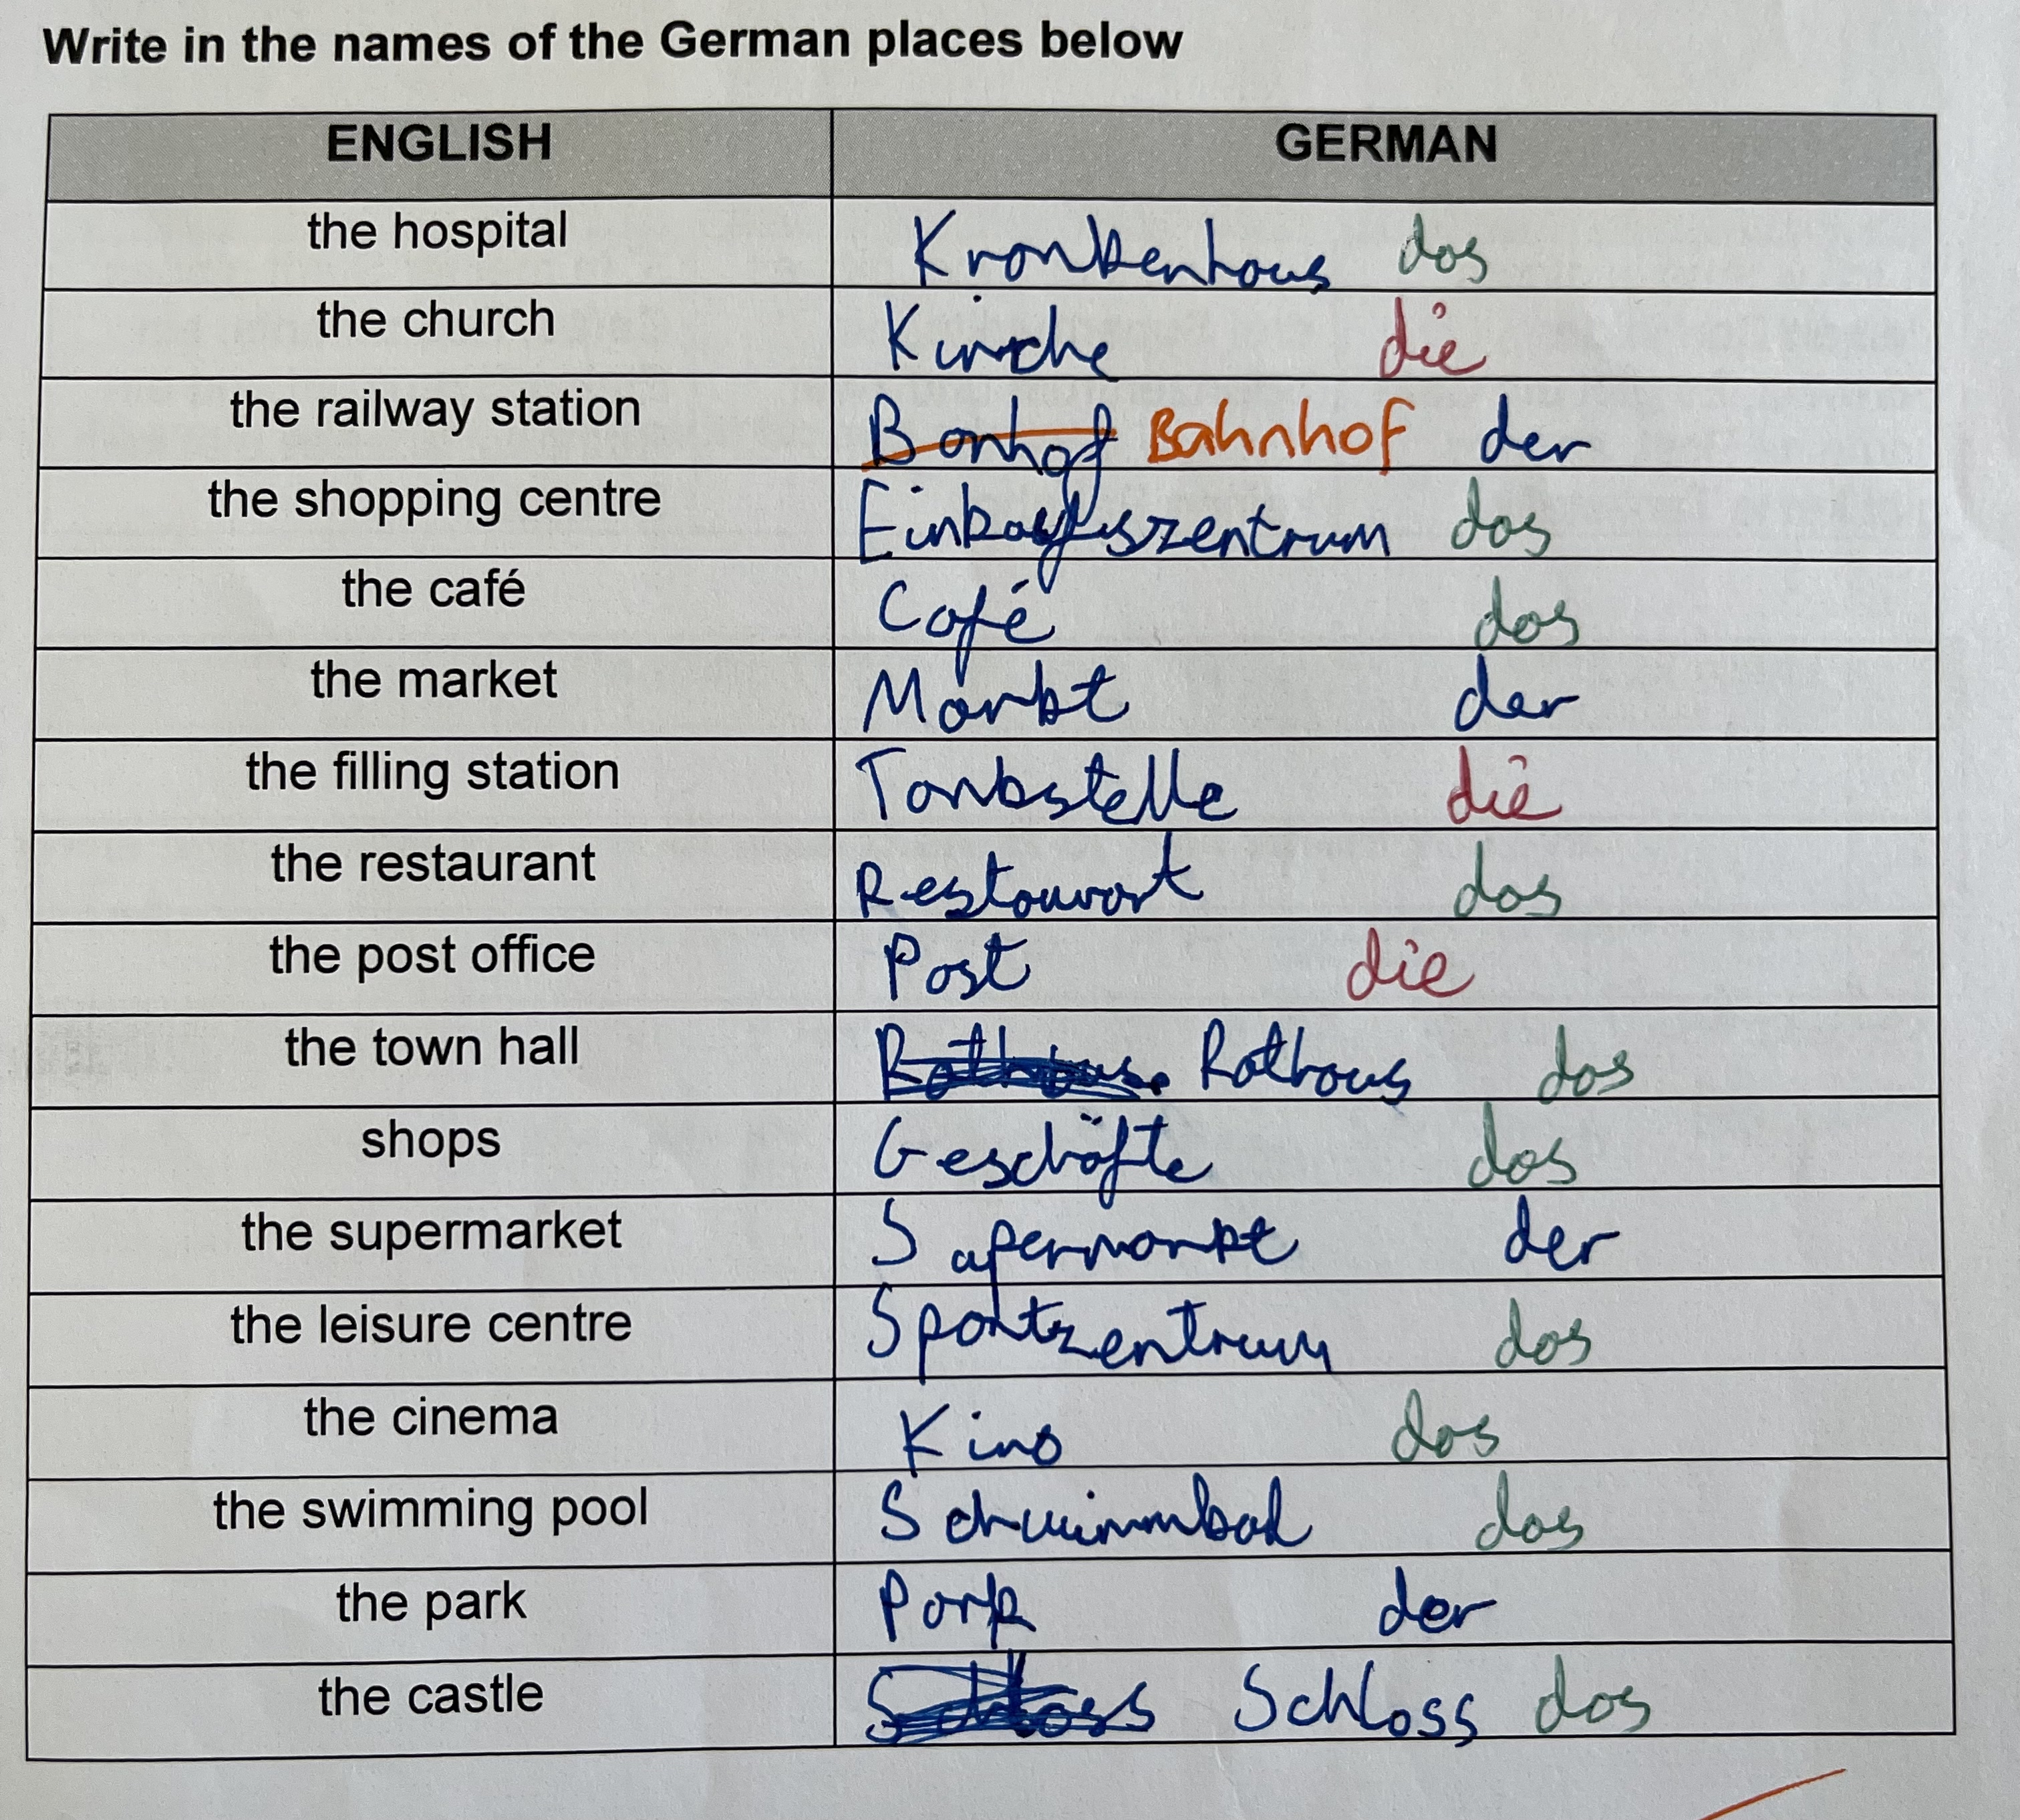 Write in the names of the German places below
ENGLISH GERMAN
the hospital Krankenhaus das
the church Kirche die
the railway station Bonhof Bahnhof der
the shopping centre Einkaufszentrum das
the café Café das
the market Markt der
the filling station Tankstelle die
the restaurant Restaurant das
the post office Post die
the town hall Rathaus Rathaus das
shops Geschäfte das
the supermarket Supermarkt der
the leisure centre Sportzentrum das
the cinema Kino das
the swimming pool Schwimmbad das
the park Park der
the castle Schloss Schloss das